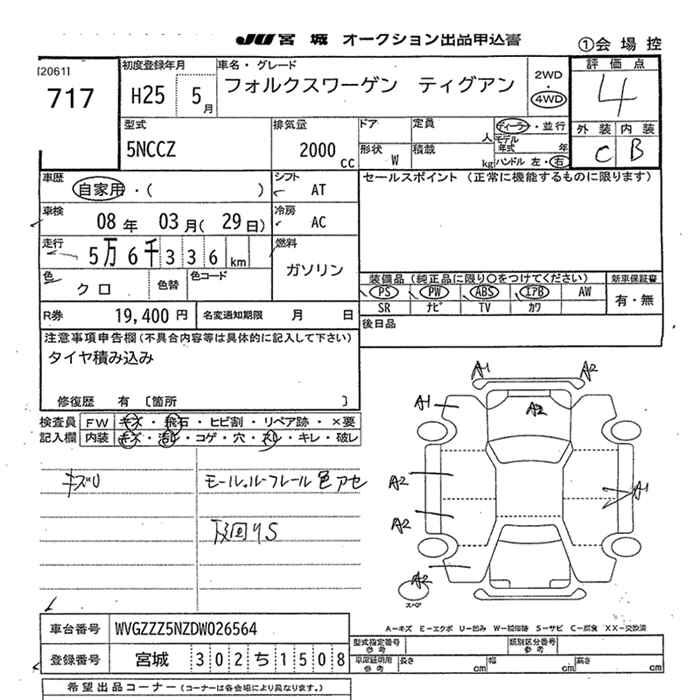 JU 宮城 オークション出品申込書
①会場控
[2061]
717
初度登録年月
H25 5月
車名・グレード
フォルクスワーゲン ティグアン
2WD
・
4WD
評価点
4
型式
5NCCZ
排気量
2000 cc
ドア
定員
人
形状 W
積載
kg
ディーラー・並行
モデル年式 年
ハンドル 左・右
外装 内装
C B
車歴
自家用・( )
シフト
AT
セールスポイント (正常に機能するものに限ります)
車検
08年 03月(29日)
冷房
AC
走行
5万6千336km
燃料
ガソリン
色
クロ
色替
色コード
装備品(純正品に限り○をつけてください)
新車保証書
PS PW ABS エアB AW
有・無
SR ナビ TV カワ
R券 19,400円
名変通知期限 月 日
後日品
注意事項申告欄(不具合内容等は具体的に記入して下さい)
タイヤ積み込み
修復歴 有 〔箇所 〕
検査員
記入欄
FW キズ・飛石・ヒビ割・リペア跡・×要
内装 キズ・汚レ・コゲ・穴・スレ・キレ・破レ
キズU
モール、ルーフレール色アセ
下回りS
A1 A2
A1 A2
A2 A1
A2
A2
スペア
A−キズ E−エクボ U−凹み W−補修跡 S−サビ C−腐食 XX−交換済
車台番号 WVGZZZ5NZDW026564
登録番号 宮城 302ち1508
型式指定番号
参考
類別区分番号
参考
車庫証明用
参考
長さ cm 幅 cm 高さ cm
希望出品コーナー (コーナーは各会場により異なります。)